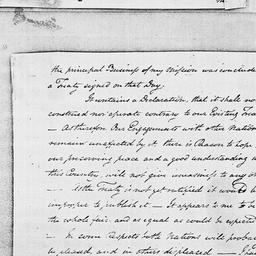 the principal Business of my Mission was conclude
a Treaty signed on that Day.
It contains a Declaration, that it shall no
construed nor operate contrary to our Existing Trea
— As therefore Our Engagements with other Nation
remain unaffected by it there is Reason to hope
our preserving peace and a good understanding w
this Country, will not give uneasiness to any o
— As the Treaty is not yet ratified it would b
improper to publish it — It appears to me to be
the whole fair and as equal as could be expected
— In some respects both Nations will probab
be pleased, and in others displeased —